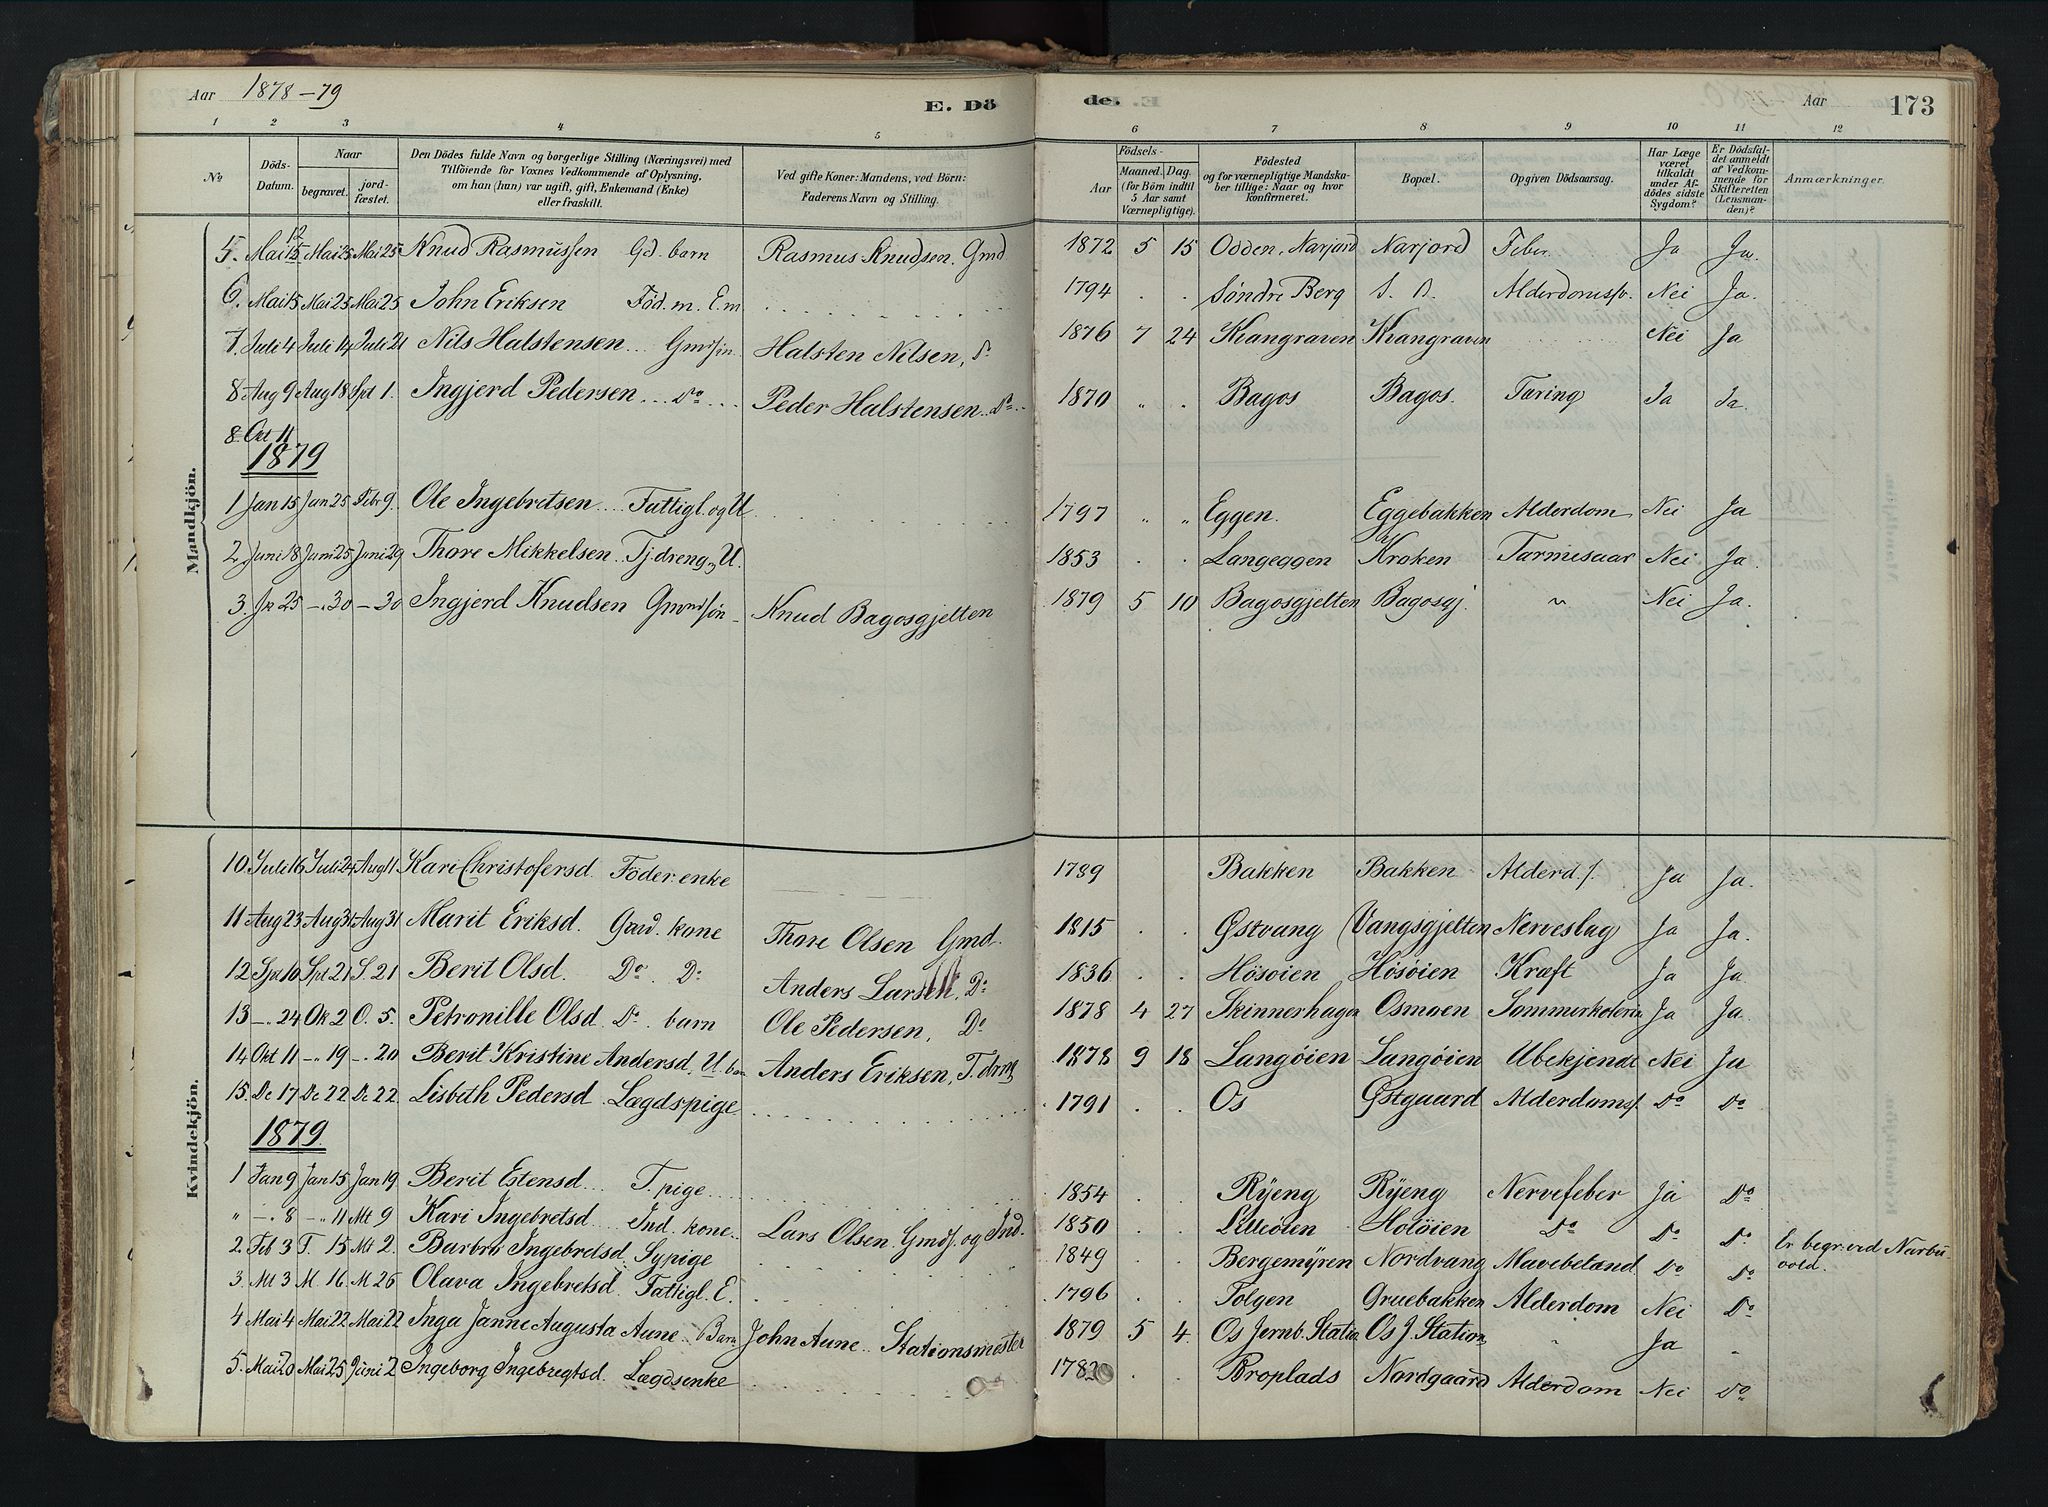 Aar 1878-79 E. Dö de. Aar 173
1 2 3 4 5 6 7 8 9 10 11 12
No Döds-Datum. Naar begravet. jord-fæstet. Den Dödes fulde Navn og borgerlige Stilling (Næringsvei) med Tilföiende for Voxnes Vedkommende af Oplysning, om han (hun) var ugift, gift, Enkemand (Enke) eller fraskilt. Ved gifte Koner: Mandens, ved Börn: Faderens Navn og Stilling. Födsels- Aar Maaned. Dag. (for Börn indtil 5 Aar samt Værnepligtige). Födested og for værnepligtige Mandskaber tillige: Naar og hvor konfirmeret. Bopæl. Opgiven Dödsaarsag. Har Læge været tilkaldt under Afdödes sidste Sygdom? Er Dödsfaldet anmeldt af Vedkommende for Skifteretten (Lensmanden)? Anmærkninger.
Mandkjön.
5. Mai 15 Mai 25 Mai 25 Knud Rasmussen Gd. barn Rasmus Knudsen, Gmd 1872 5 15 Odden, Narjord Narjord Feber Ja Ja
6. Mai 15 Mai 25 Mai 25 John Eriksen Föd. m. E.m. 1794 Søndre Berg S. B. Nei Ja.
7. Juli 4 Juli 14 Juli 21 Nils Halstensen Gmdsøn Halsten Nilsen, Do 1876 7 24 Kvangraven Kvangraven Nei Ja
8 Aug 9 Aug 18 Spt 1. Ingjerd Pedersen Do Peder Halstensen Do 1870 " . Bagos Bagos. Tæring Ja Ja.
8. Okt 11
1879
1 Jan 15 Jan 25 Febr 9. Ole Ingebretsen Fattigl. og U 1797 " " Eggen. Eggebakken Alderdom Nei Ja
2 Juni 18 Juni 25 Juni 29 Thore Mikkelsen Tjdreng, U. 1853 . . Langeggen Kroken Nei Ja.
3. 25 -. 30 - 30 Ingjerd Knudsen Gmandsøn Knud Bagosgjelten 1879 5 10 Bagosgjelten Bagosgj. " Nei Ja.
Kvindekjön.
10. Juli 16 Juli 24 Aug 11 Kari Christofersd. Föder. enke 1789 Bakken Bakken Alderd.s. Ja Ja.
11 Aug 23 Aug 31 Aug 31 Marit Eriksd. Gaard. kone Thore Olsen Gmd. 1815 . . Østvang Vangsgjelten Nerveslag Ja Ja.
12 Spt 10 Spt 21 S. 21 Berit Olsd. Do. Do Anders Larsen, Do 1836 . . Høsøien Høsøien Kræft Ja Ja
13 -. 24 Ok 2 O. 5. Petronille Olsd. Do. barn Ole Pedersen, Do 1878 4 27 Skinnerhagen Osmoen Sommerkolerin Ja Ja.
14 Okt 11 -. 19 -. 20 Berit Kristine Andersd. U. barn Anders Eriksen, 1878 9 18 Langøien Langøien Ubekjendt Nei Ja
15. De 17 De 22 De 22. Lisbeth Pedersd. Lægdspige 1791 . . Os Østgaard Alderdoms. Do Do
1879
1 Jan 9 Jan 15 Jan 19 Berit Estensd. T. pige 1854 . . Ryeng Ryeng Nervefeber Ja Do
" -. 8 -. 11 Mt 9 Kari Ingebretsd. Ind. kone. Lars Olsen Gmds. og Ind. 1850 . . Holøien Do Do Do
2. Feb 3 F. 15 Mt 2. Barbru Ingebretsd. Sypige 1849 Bergemyren Nordvang Mavebetænd Do Do Er begr. ved Narbuvold.
3. Mt 3 M. 16 M 26 Olava Ingebretsd. Fattigl. E. 1796 Tolgen Gruebakken Alderdom Nei Do
4 Mai 4 Mai 22 Mai 22 Inga Janne Augusta Aune Barn John Aune Stationsmester 1879 5 4. Os Jernb. Station Os J. Station " Ja "
5. Mai 20 Mai 25 Juni 2 Ingeborg Ingebregtsd. Lægdsenke . . Broplads Nordgaard Alderdom Nei Do